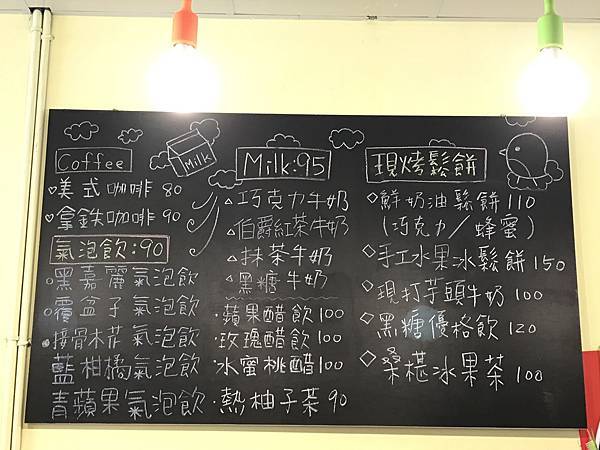 Coffee
♡美式咖啡 80
♡拿鉄咖啡 90
氣泡飲:90
黑嘉麗氣泡飲
覆盆子氣泡飲
接骨木花氣泡飲
藍柑橘氣泡飲
青蘋果氣泡飲
Milk
Milk:95
△巧克力牛奶
△伯爵紅茶牛奶
△抹茶牛奶
△黑糖牛奶
·蘋果醋飲100
·玫瑰醋飲100
·水蜜桃醋100
·熱柚子茶 90
現烤鬆餅
◇鮮奶油鬆餅110
(巧克力/蜂蜜)
◇手工水果冰鬆餅150
◇現打芋頭牛奶 100
◇黑糖優格飲 120
◇桑椹冰果茶 100